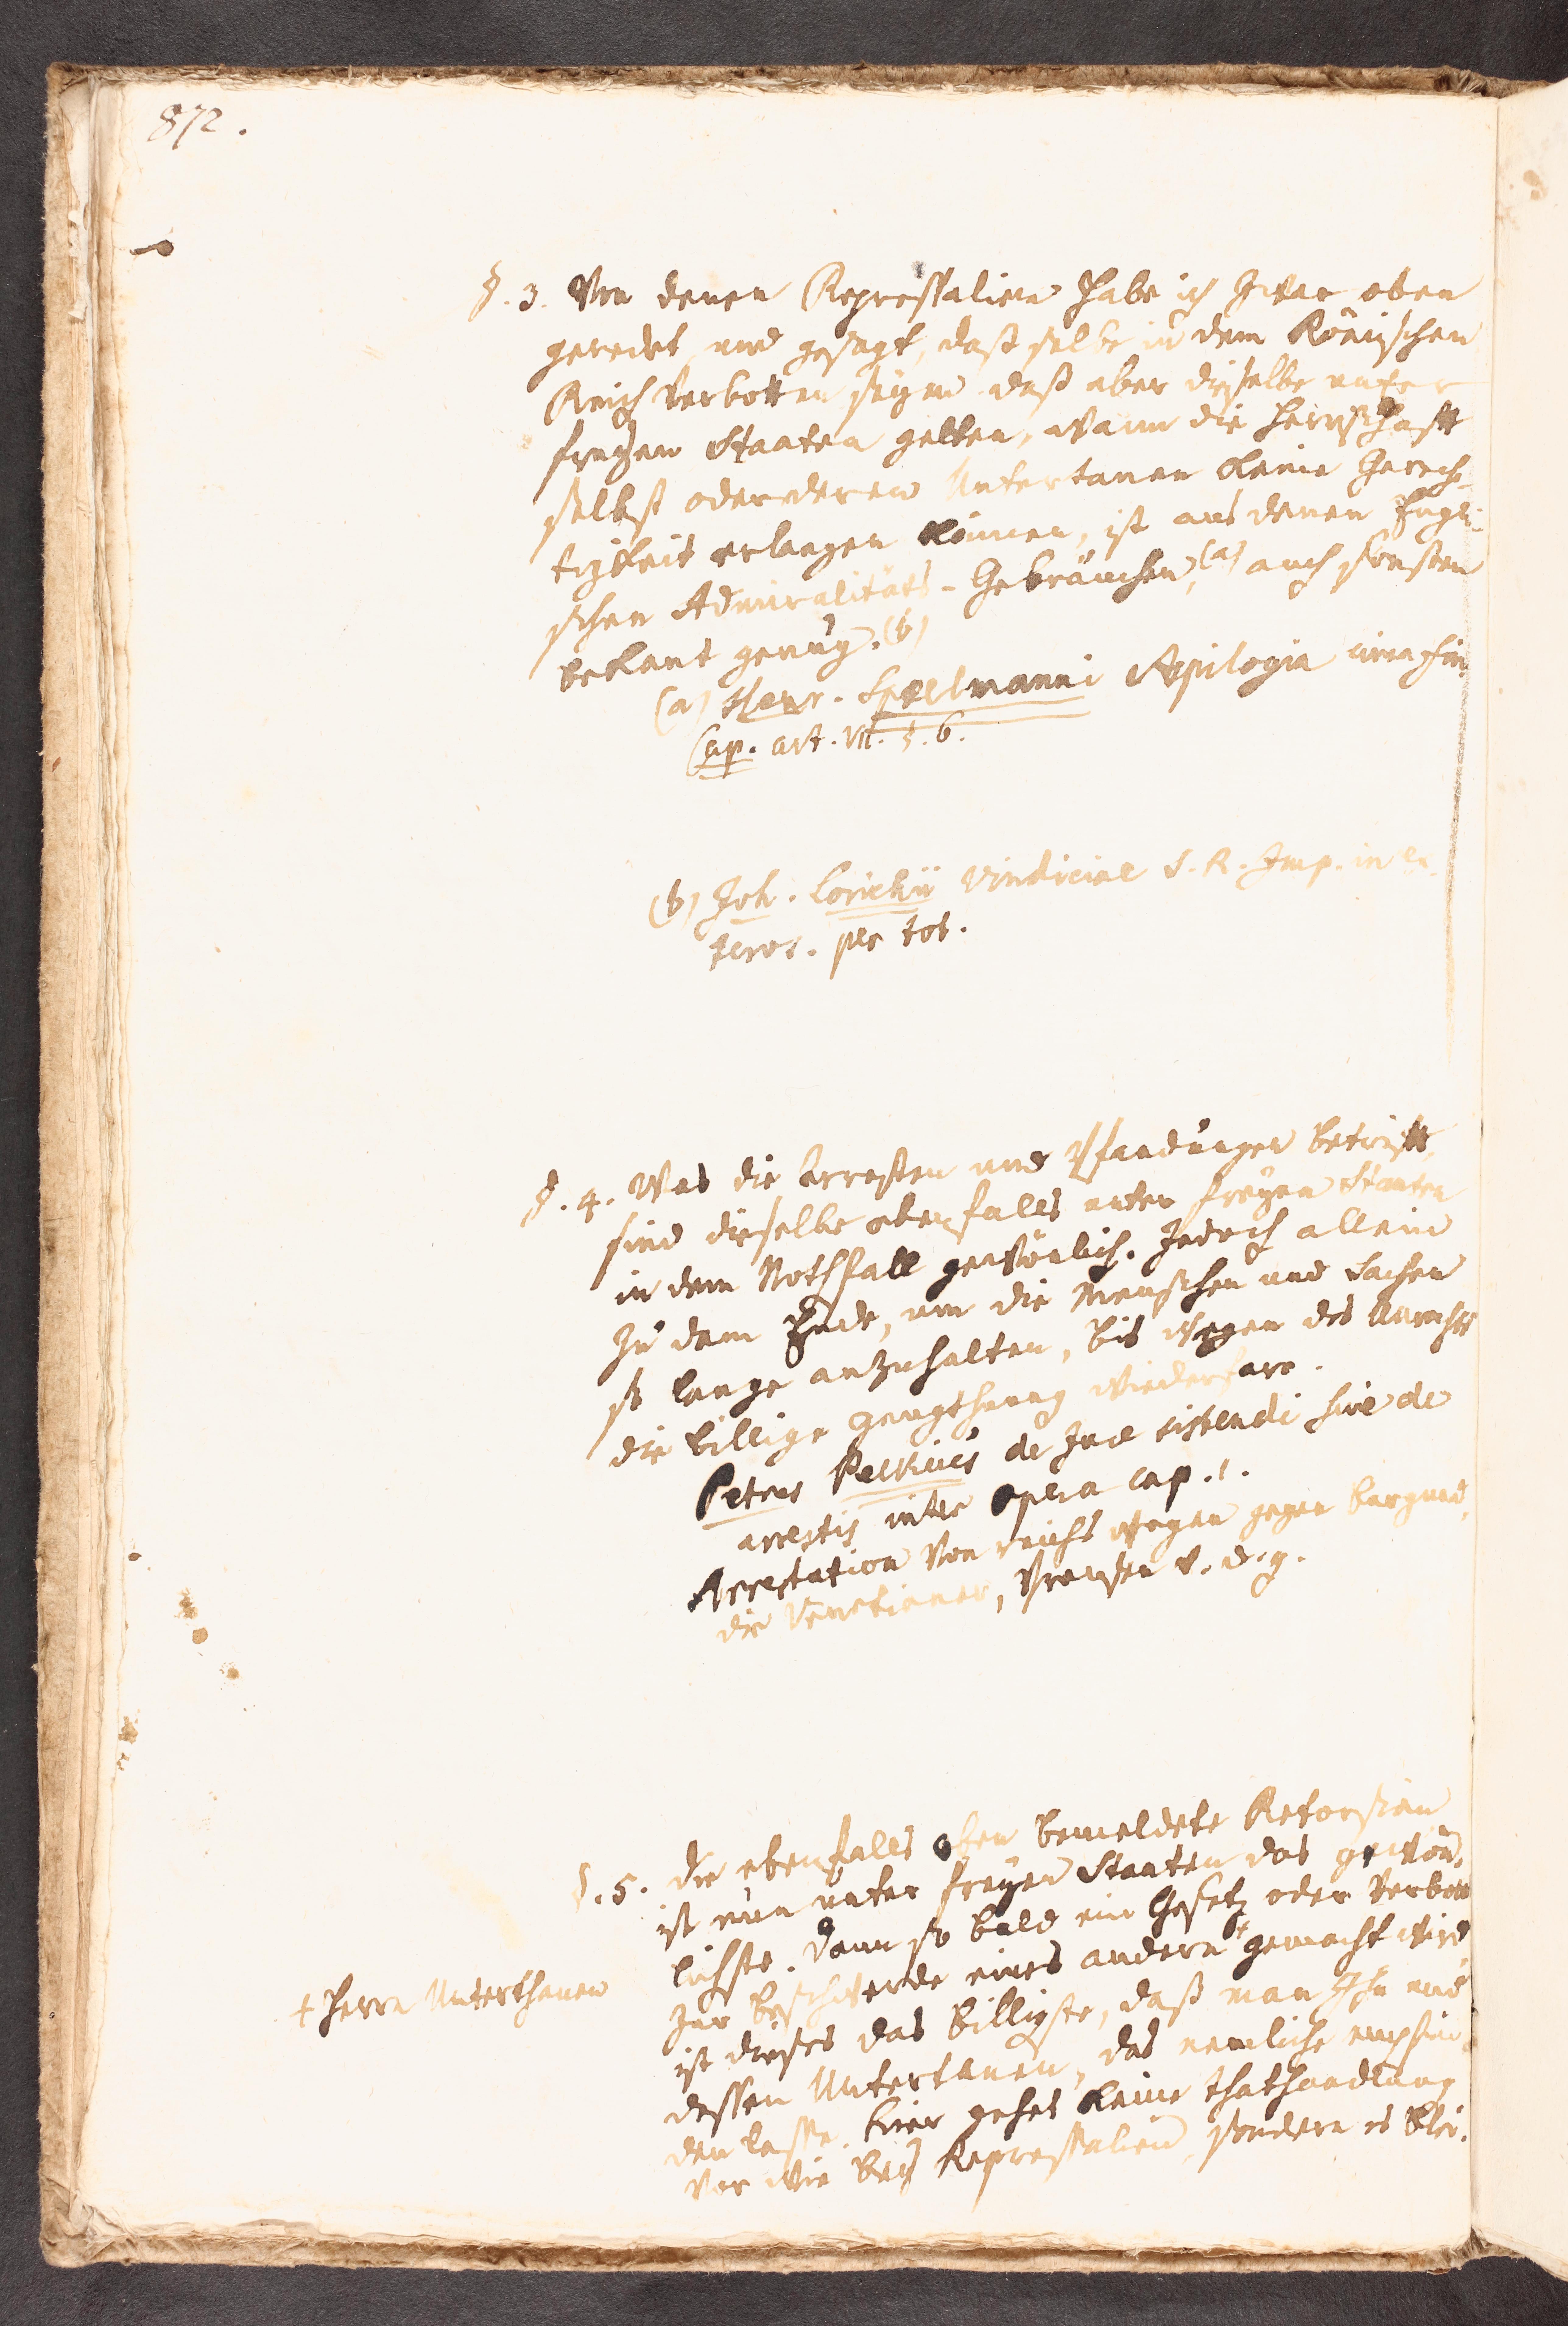 872.
§. 3. Von denen Repressalien habe ich zwar oben
geredet und gesagt, daß selbe in dem Römischen
Reich verbotten seyen daß aber dieselbe unter
freyen Staaten gelten, wann die Herrschaft
selbst oder deren Untertanen keine Gerech-
tigkeit erlangen können, ist aus denen Engli-
schen Admiralitäts-Gebräuchen, (a) auch sonsten
bekant genug. (b)
(a) Henr. Spelmanni Apilogia circa fin.
Cap. art. VII. §. 6.
(b) Joh. Lorichii Vindiciae S. R. Imp. in
per tot.
§. 4. Was die Arresten und Pfandungen betrifft,
sind dieselbe ebenfalls unter freyen Staaten
in dem Nothfall gewönlich. Jedoch allein
zu dem Ende, um die Menschen und Sachen
so lange anzuhalten, bis wegen des Unrechts
die billige genugthuung wiederfare.
Petrus Peckius de Jure sistendi sive de
arrestis inter Opera cap. 1.
Arrestation von reichs wegen gegen Burgund,
die Venetianer, Preussen u. d. g.
§. 5. Die ebenfalls oben bemeldete Retorsion
ist nun unter freyen Staaten das gewön-
lichste. Dann so bald ein Gesetz oder Verbott
zur Beschwerde eines andern + gemacht wird
+ Herrn Unterthanen
ist dieses das billigste, daß man Ihn und
dessen Untertanen, das nemliche empfin-
den lasse. Hier gehet keine thathandlung
vor wie bey Repressalien, sondern es blei-